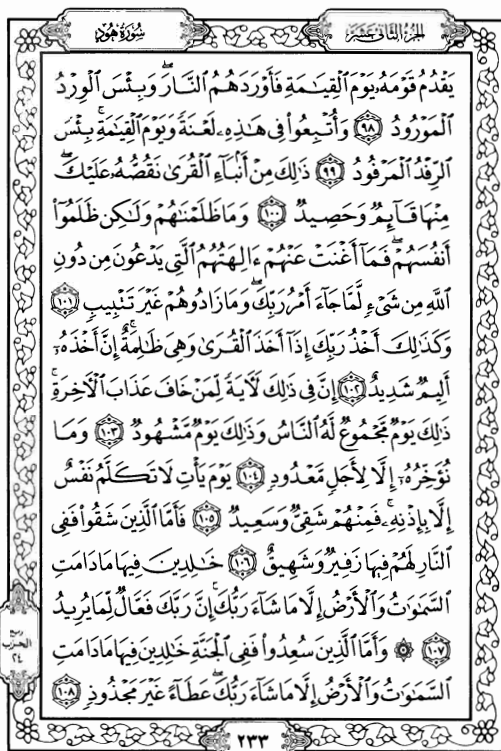 سُورَةُ هُودٍ
الجُزْءُ الثَّانِي عَشَرَ
يَقْدُمُ قَوْمَهُۥ يَوْمَ ٱلْقِيَٰمَةِ فَأَوْرَدَهُمُ ٱلنَّارَ ۖ وَبِئْسَ ٱلْوِرْدُ
ٱلْمَوْرُودُ ٩٨ وَأُتْبِعُوا۟ فِى هَٰذِهِۦ لَعْنَةً وَيَوْمَ ٱلْقِيَٰمَةِ ۚ بِئْسَ
ٱلرِّفْدُ ٱلْمَرْفُودُ ٩٩ ذَٰلِكَ مِنْ أَنۢبَآءِ ٱلْقُرَىٰ نَقُصُّهُۥ عَلَيْكَ ۖ
مِنْهَا قَآئِمٌ وَحَصِيدٌ ١٠٠ وَمَا ظَلَمْنَٰهُمْ وَلَٰكِن ظَلَمُوٓا۟
أَنفُسَهُمْ ۖ فَمَآ أَغْنَتْ عَنْهُمْ ءَالِهَتُهُمُ ٱلَّتِى يَدْعُونَ مِن دُونِ
ٱللَّهِ مِن شَىْءٍ لَّمَّا جَآءَ أَمْرُ رَبِّكَ ۖ وَمَا زَادُوهُمْ غَيْرَ تَتْبِيبٍ ١٠١
وَكَذَٰلِكَ أَخْذُ رَبِّكَ إِذَآ أَخَذَ ٱلْقُرَىٰ وَهِىَ ظَٰلِمَةٌ ۚ إِنَّ أَخْذَهُۥٓ
أَلِيمٌ شَدِيدٌ ١٠٢ إِنَّ فِى ذَٰلِكَ لَءَايَةً لِّمَنْ خَافَ عَذَابَ ٱلْءَاخِرَةِ ۚ
ذَٰلِكَ يَوْمٌ مَّجْمُوعٌ لَّهُ ٱلنَّاسُ وَذَٰلِكَ يَوْمٌ مَّشْهُودٌ ١٠٣ وَمَا
نُؤَخِّرُهُۥٓ إِلَّا لِأَجَلٍ مَّعْدُودٍ ١٠٤ يَوْمَ يَأْتِ لَا تَكَلَّمُ نَفْسٌ
إِلَّا بِإِذْنِهِۦ ۚ فَمِنْهُمْ شَقِىٌّ وَسَعِيدٌ ١٠٥ فَأَمَّا ٱلَّذِينَ شَقُوا۟ فَفِى
ٱلنَّارِ لَهُمْ فِيهَا زَفِيرٌ وَشَهِيقٌ ١٠٦ خَٰلِدِينَ فِيهَا مَا دَامَتِ
ٱلسَّمَٰوَٰتُ وَٱلْأَرْضُ إِلَّا مَا شَآءَ رَبُّكَ ۚ إِنَّ رَبَّكَ فَعَّالٌ لِّمَا يُرِيدُ
١٠٧ ۞ وَأَمَّا ٱلَّذِينَ سُعِدُوا۟ فَفِى ٱلْجَنَّةِ خَٰلِدِينَ فِيهَا مَا دَامَتِ
ٱلسَّمَٰوَٰتُ وَٱلْأَرْضُ إِلَّا مَا شَآءَ رَبُّكَ ۖ عَطَآءً غَيْرَ مَجْذُوذٍ ١٠٨
ربع
الحزب
٢٤
٢٣٣